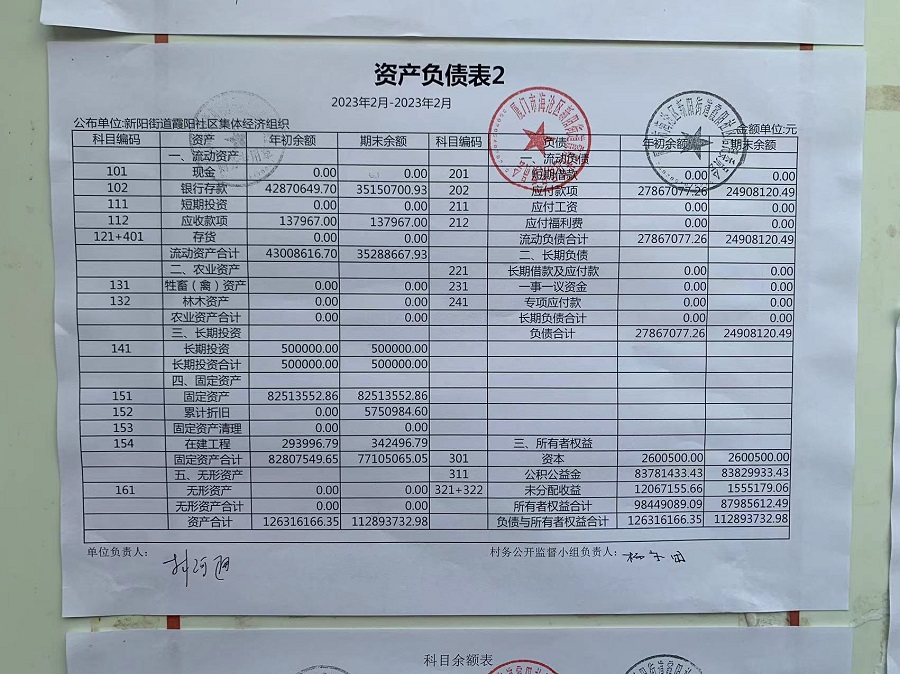 资产负债表2
2023年2月-2023年2月
公布单位:新阳街道霞阳社区集体经济组织 金额单位:元
科目编码 资产 年初余额 期末余额 科目编码 负债 年初余额 期末余额
一、流动资产 一、流动负债
101 现金 0.00 0.00 201 短期借款 0.00 0.00
102 银行存款 42870649.70 35150700.93 202 应付款项 27867077.26 24908120.49
111 短期投资 0.00 0.00 211 应付工资 0.00 0.00
112 应收款项 137967.00 137967.00 212 应付福利费 0.00 0.00
121+401 存货 0.00 0.00 流动负债合计 27867077.26 24908120.49
流动资产合计 43008616.70 35288667.93 二、长期负债
二、农业资产 221 长期借款及应付款 0.00 0.00
131 牲畜（禽）资产 0.00 0.00 231 一事一议资金 0.00 0.00
132 林木资产 0.00 0.00 241 专项应付款 0.00 0.00
农业资产合计 0.00 0.00 长期负债合计 0.00 0.00
三、长期投资 负债合计 27867077.26 24908120.49
141 长期投资 500000.00 500000.00
长期投资合计 500000.00 500000.00
四、固定资产
151 固定资产 82513552.86 82513552.86
152 累计折旧 0.00 5750984.60
153 固定资产清理 0.00 0.00
154 在建工程 293996.79 342496.79 三、所有者权益
固定资产合计 82807549.65 77105065.05 301 资本 2600500.00 2600500.00
五、无形资产 311 公积公益金 83781433.43 83829933.43
161 无形资产 0.00 0.00 321+322 未分配收益 12067155.66 1555179.06
无形资产合计 0.00 0.00 所有者权益合计 98449089.09 87985612.49
资产合计 126316166.35 112893732.98 负债与所有者权益合计 126316166.35 112893732.98
单位负责人: 村务公开监督小组负责人:
科目余额表